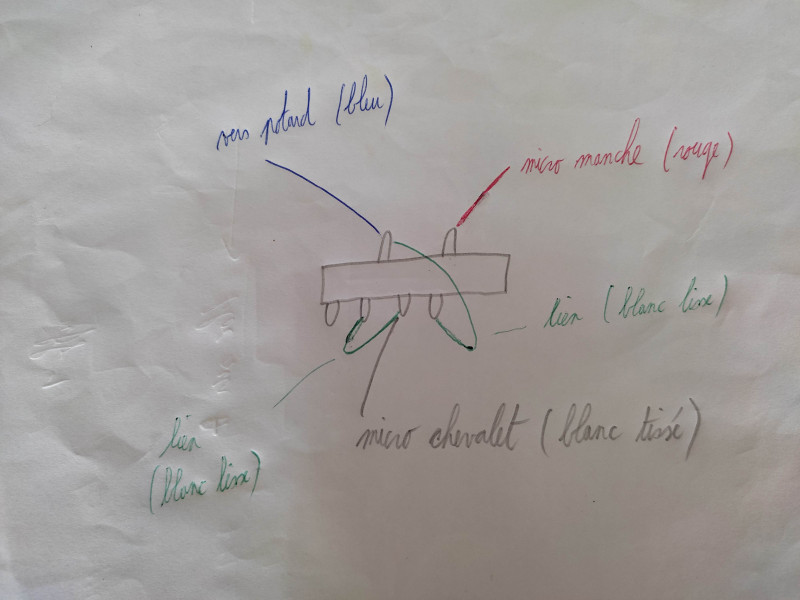 vers potard (bleu)
micro manche (rouge)
lien (blanc lisse)
micro chevalet (blanc tissé)
lien
(blanc lisse)